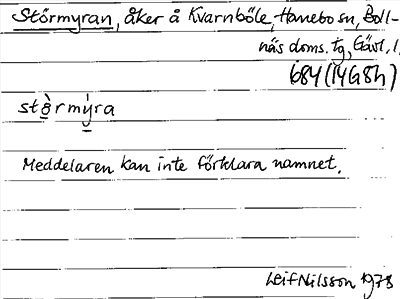 Störmyran, åker å Kvarnböle, Hanebo sn, Boll-
näs doms. tg, Gävl. l.
684 (14G8h)
stö̀rmýra
Meddelaren kan inte förklara namnet.
Leif Nilsson 1978